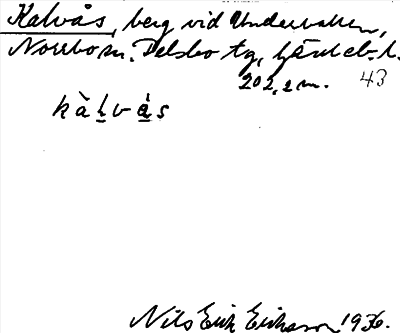 Kalvås, berg vid Undervallen,
Norrbo sn. Delsbo tg, Gävleb. l.
202,2 m. 43
kàl̲vá̲s
Nils Erik Erikson 1936.